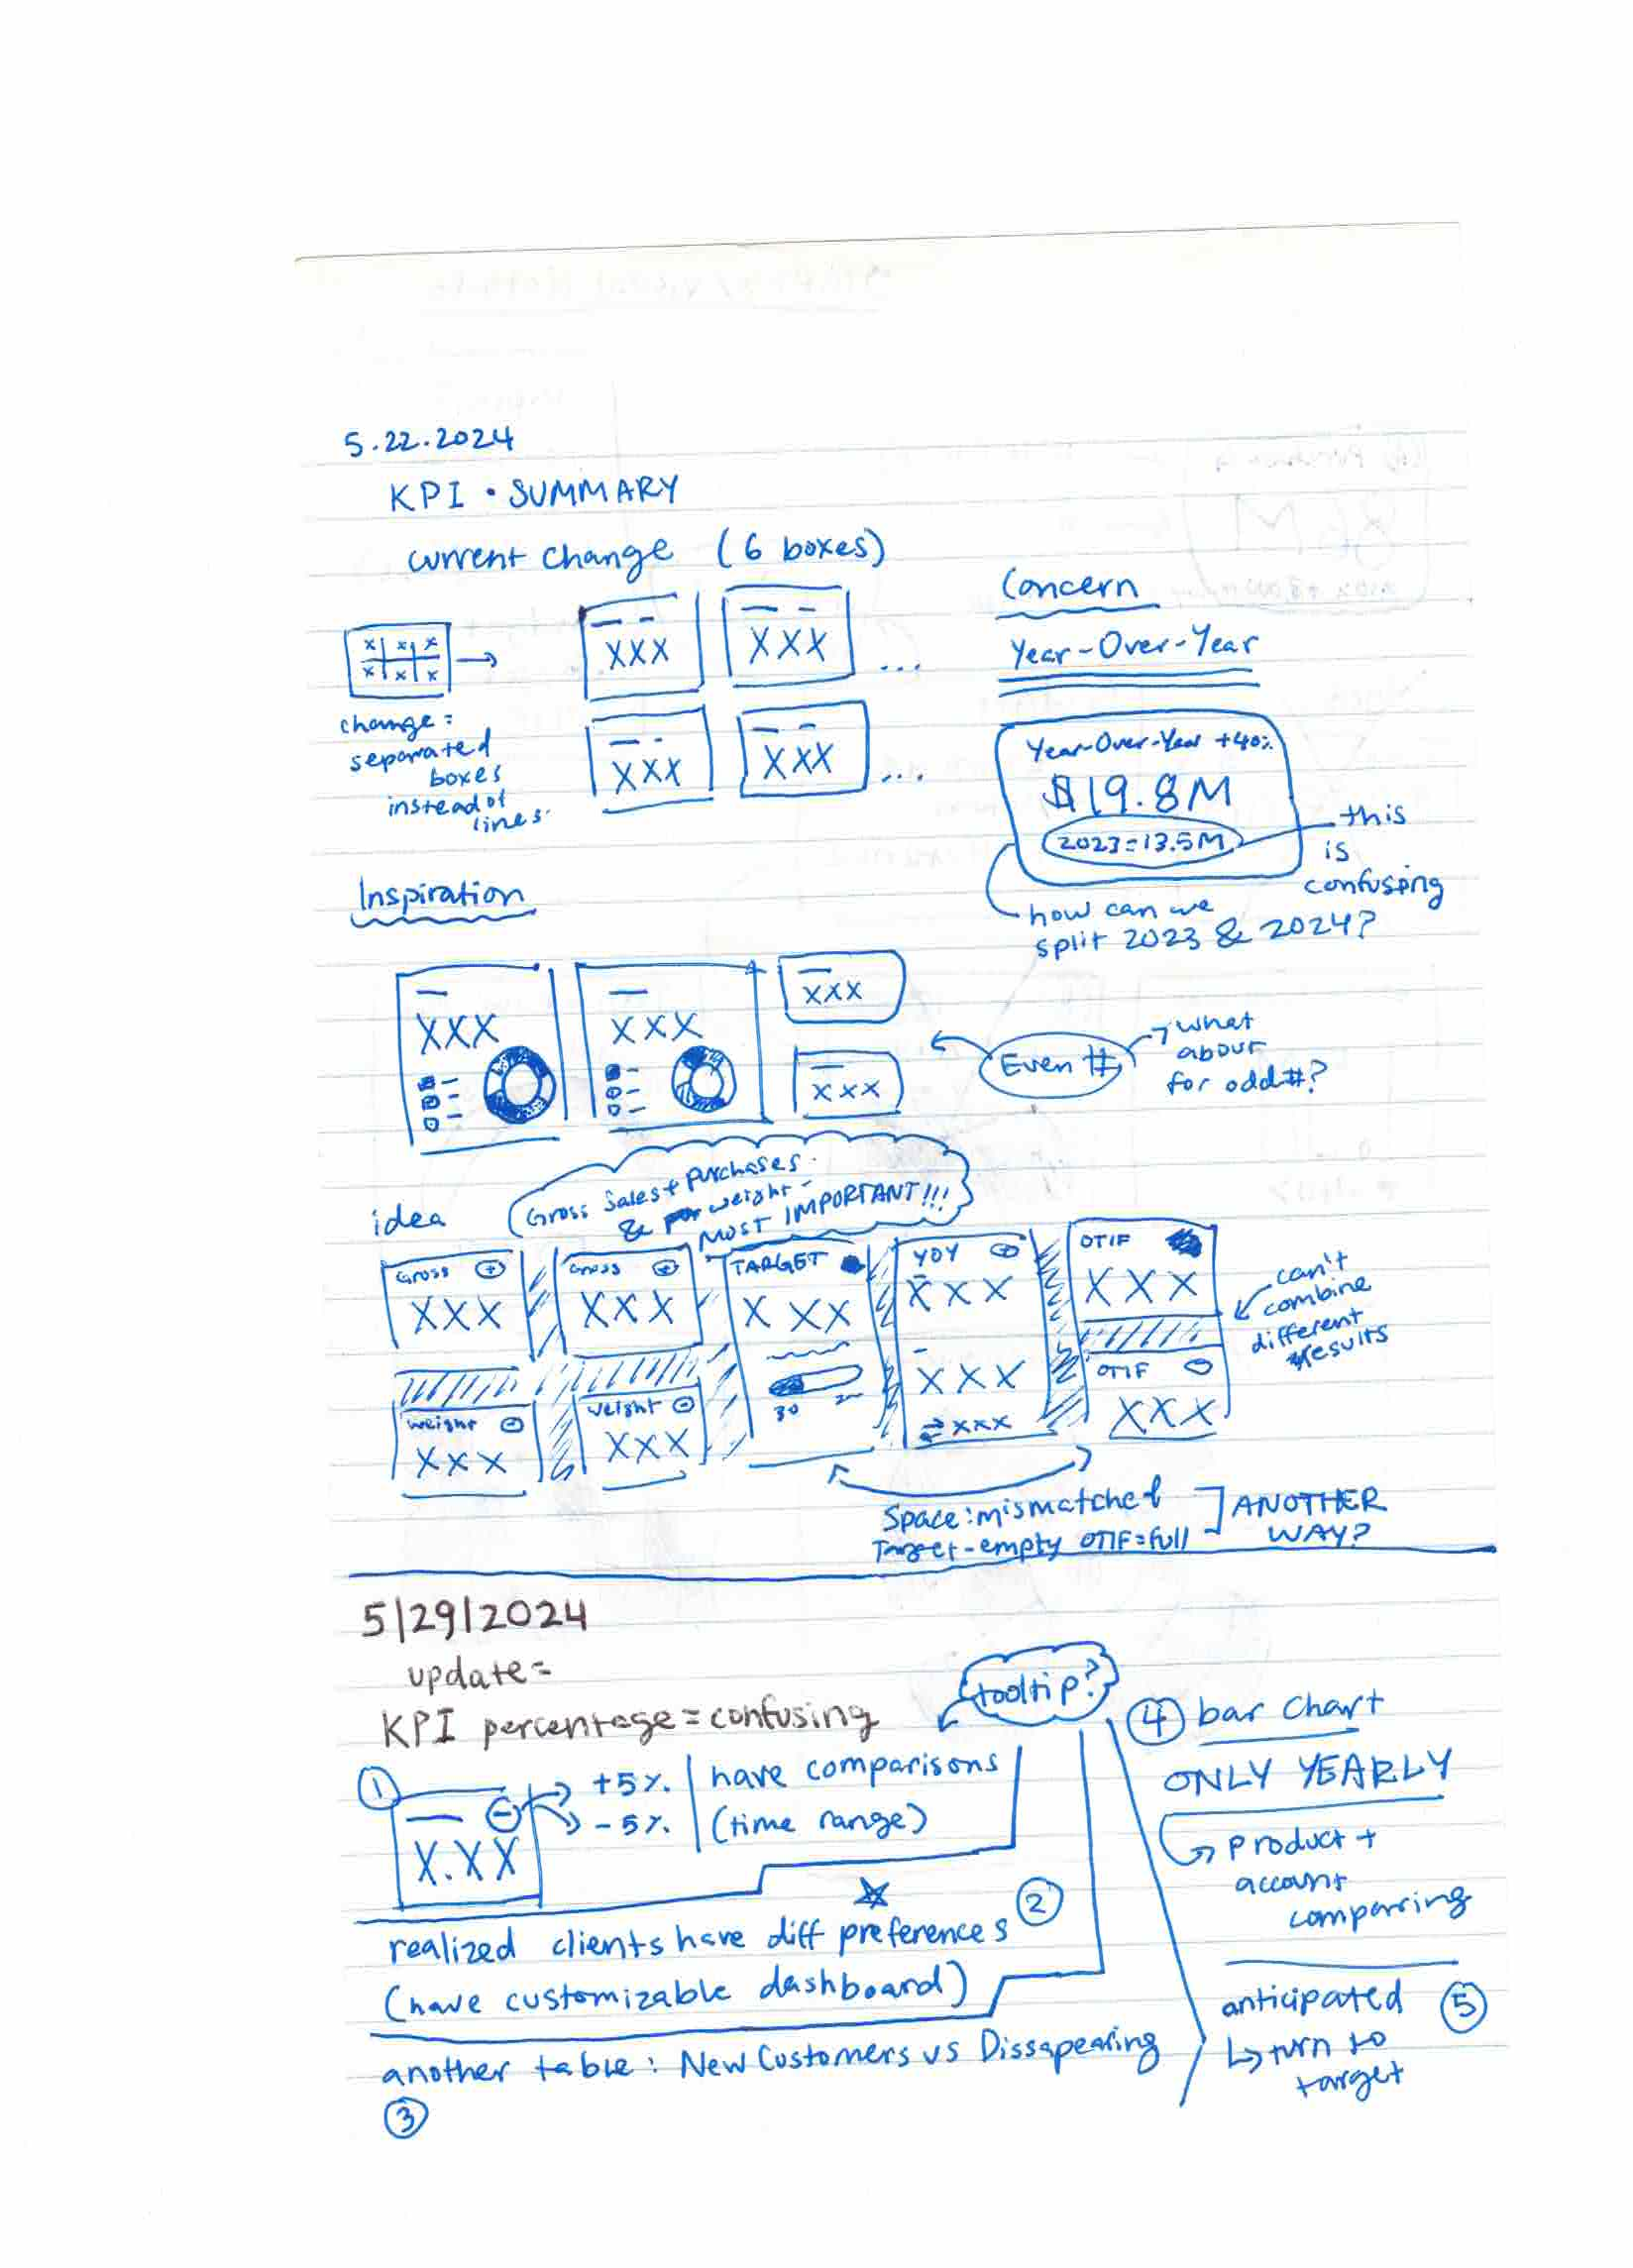 5.22.2024
KPI • SUMMARY
current change (6 boxes)
x x x
x x x
change:
separated
boxes
instead of
lines.
XXX
XXX
...
XXX
XXX
...
Concern
Year-Over-Year
Year-Over-Year +40%
$19.8M
2023=13.5M
this
is
confusing
how can we
split 2023 & 2024?
Inspiration
XXX
XXX
XXX
XXX
Even #
what
about
for odd #?
idea
Gross Sales + Purchases
& weight-
MOST IMPORTANT!!!
Gross +
XXX
Gross +
XXX
TARGET
X XX
30
YOY +
XXX
XXX
XXX
OTIF
XXX
OTIF
XXX
weight -
XXX
weight -
XXX
can't
combine
different
results
Space: mismatched
Target-empty OTIF=full
ANOTHER
WAY?
5|29|2024
update=
KPI percentage = confusing
tooltip?
1
X.XX
+5%.
-5%.
have comparisons
(time range)
2
realized clients have diff preferences
(have customizable dashboard)
another table: New Customers vs Dissapearing
3
4 bar chart
ONLY YEARLY
product +
account
comparing
anticipated 5
turn to
target